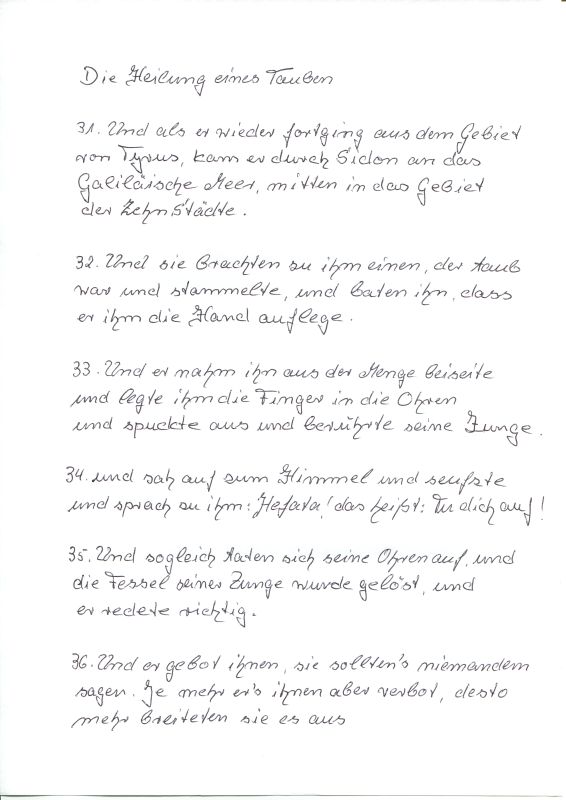 Die Heilung eines Tauben
31. Und als er wieder fortging aus dem Gebiet
von Tyrus, kam er durch Sidon an das
Galiläische Meer, mitten in das Gebiet
der Zehn Städte.
32. Und sie brachten zu ihm einen, der taub
war und stammelte, und baten ihn, dass
er ihm die Hand auflege.
33. Und er nahm ihn aus der Menge beiseite
und legte ihm die Finger in die Ohren
und spuckte aus und berührte seine Zunge.
34. und sah auf zum Himmel und seufzte
und sprach zu ihm: Hefata! das heißt: Tu dich auf!
35. Und sogleich taten sich seine Ohren auf, und
die Fessel seiner Zunge wurde gelöst, und
er redete richtig.
36. Und er gebot ihnen, sie sollten's niemandem
sagen. Je mehr er's ihnen aber verbot, desto
mehr breiteten sie es aus